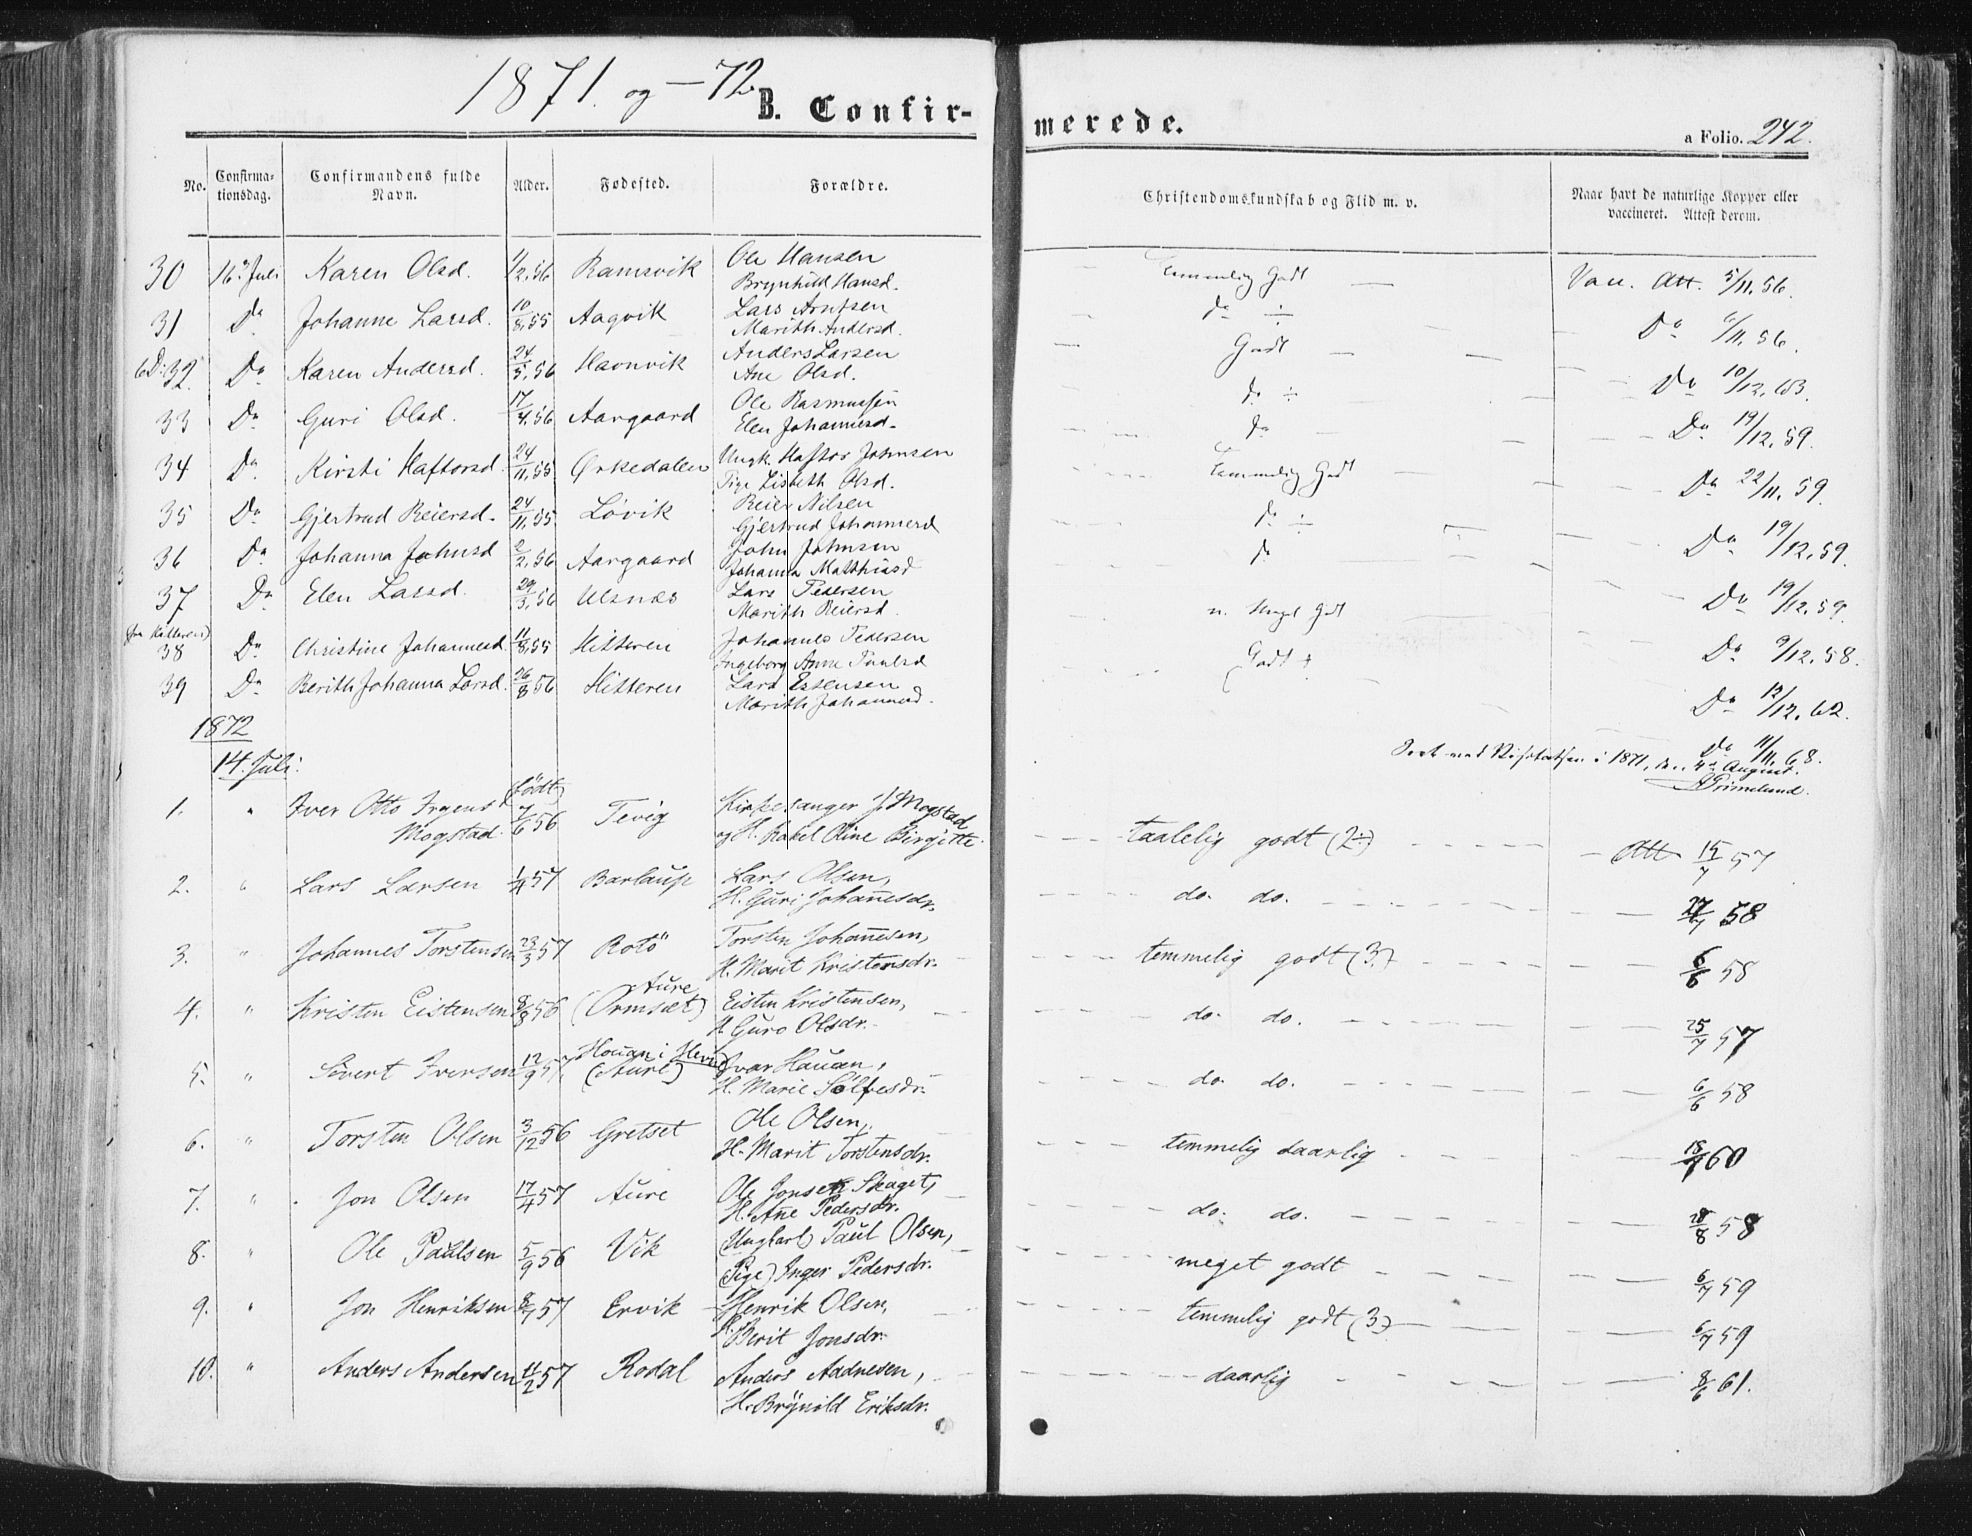 1871. og - 72
B. Confir-
merede.
a Folio. 242.
No. Confirma-tionsdag. Confirmandens fulde Navn. Alder. Fødested. Forældre. Christendomskundskab og Flid m. v. Naar havt de naturlige Kopper eller vaccineret. Attest derom.
30 16de Juli Karen Olsd. 1/2,56 Ramsvik Ole Hansen Temmelig Godt Vacc. Att. 5/11.56.
Brynhild Hansd.
31 Do Johanne Larsd. 10/8,55 Aagvik Lars Arntsen do ÷ Do 6/11.56.
Marith Andersd.
32. Do Karen Andersd. 24/5,56 Havnvik Anders Larsen Godt Do 10/12.63.
Ane Olsd.
33 Do Guri Olsd. 17/4,56 Aargaard Ole Rasmussen do ÷ Do 19/12.59.
Elen Johannesd.
34 Do Kirsti Haftorsd. 24/11,55 Ørkedalen Ungk. Haftor Johnsen do Do 22/11.59.
Pige Lisbeth Olsd. Temmelig Godt
35 Do Gjertrud Reiersd. 24/11,55 Lövik Reier Nilsen do ÷ Do 19/12.59.
Gjertrud Johannesd
36 Do Johanna Johnsd 2/2,56 Aargaard John Johnsen do Do 19/12.59.
Johanna Matthiasd
37 Do Elen Larsd. 29/3,56 Ulsnæs Lars Pedersen n. Meget Godt Do 9/12.58.
Marith Reiersd.
(fra Hitteren)
38 Do Christine Johannesd. 11/8,55 Hitteren Johannes Pedersen Godt + Do 12/12.62.
Ingeborg Anne Paulsd
39 Do Berith Johanna Larsd. 26/8 56 Hitteren Lars Estensen Do 11/11.68.
Marith Johannesd.
1872
14. Juli. i 1871, August.
(født)
1. " Iver Otto Irgens 7/6 56 Tevig Kirkesanger J. Mogstad taalelig godt (2÷) Att 15/7 57
Mogstad og H. Rakel Oline Birgitte.
2. " Lars Larsen 1/4 57 Barlaup Lars Olsen, do. do. 58
H. Guri Johañesdr.
3. " Johannes Torstensen 23/3 57 Rotö Torsten Johañesen, temmelig godt (3.) 6/6 58
H. Marit Kristensdr.
4. " Kristen Eistensen 8/8 56 Aure (Ormsæt) Eisten Kristensen, do. do. 25/7 57
H. Guro Olsdr.
5. " Sivert Iversen 12/9 57 Houan i Hevne (Aure) Ivar Hauan, do. do. 6/6 58
H. Marie Sölfesdr.
6. " Torsten Olsen 3/12 56 Gretset Ole Olsen, temmelig daarlig 18/7 60
H. Marit Torstensdr.
7. " Jon Olsen 17/4 57 Aure Ole Jonsen Skaget, do. do. 18/8 58
H. Añe Pedersdr.
8. " Ole Paulsen 5/9 56 Vik (Ungkarl) Paul Olsen, meget godt 6/7 59
(Pige) Inger Pedersdr.
9. " Jon Henriksen 8/7 57 Ervik Henrik Olsen, temmelig godt (3.) 6/7 59
H. Berit Jonsdr.
10. " Anders Andersen 11/2 57 Rodal Anders Aadnesen, daarlig 8/6 61.
H. Brynild Eriksdr.